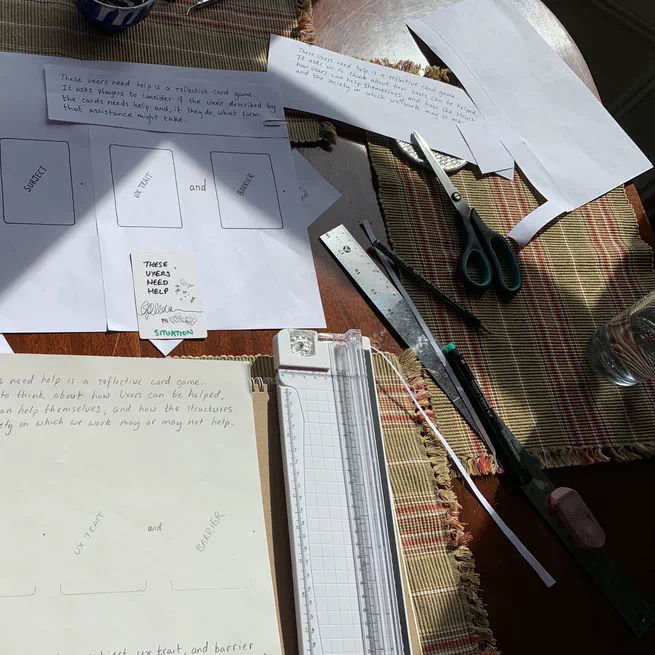 These uxers need help is a reflective card game.
It asks players to consider if the uxer described by
the cards needs help and, if they do, what form
that assistance might take.
These uxers need help is a reflective card game.
It asks us to think about how uxers can be helped,
how uxers can help themselves, and how the struc
and the society in which we work may or ma
SUBJECT
UX TRAIT
and
BARRIER
THESE
UXERS
NEED
HELP
SITUATION
s need help is a reflective card game.
to think about how uxers can be helped,
an help themselves, and how the structures
ety in which we work may or may not help.
UX TRAIT
and
BARRIER
bject, ux trait, and barrier